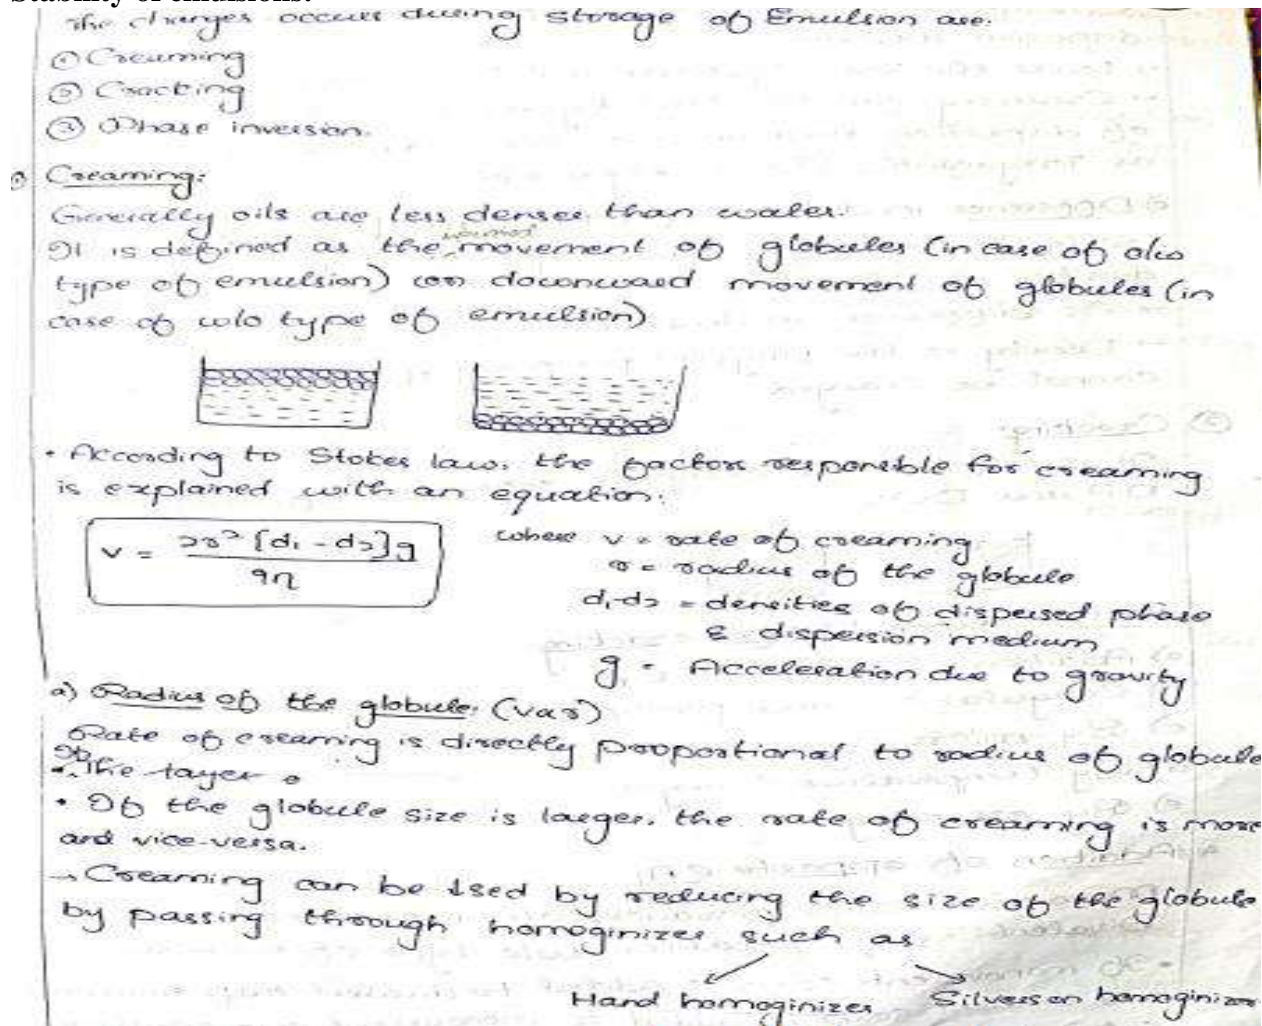 Stability of emulsions:
The changes occurs during storage of Emulsion are.
① Creaming
② Cracking
③ Phase inversion.
① Creaming:
Generally oils are less denser than water.
It is defined as the upward movement of globules (in case of o/w
type of emulsion) (or) downward movement of globules (in
case of w/o type of emulsion)
• According to Stokes law, the factors responsible for creaming
is explained with an equation.
v = 2r² [d₁ - d₂] g / 9η
where v = rate of creaming
r = radius of the globule
d₁-d₂ = densities of dispersed phase
& dispersion medium
g = Acceleration due to gravity
a) Radius of the globule: (v α r)
Rate of creaming is directly proportional to radius of globule
The layer
• If the globule size is larger, the rate of creaming is more
and vice-versa.
→ Creaming can be ↓sed by reducing the size of the globule
by passing through homoginizer such as
Hand homoginizer Silverson homoginizer